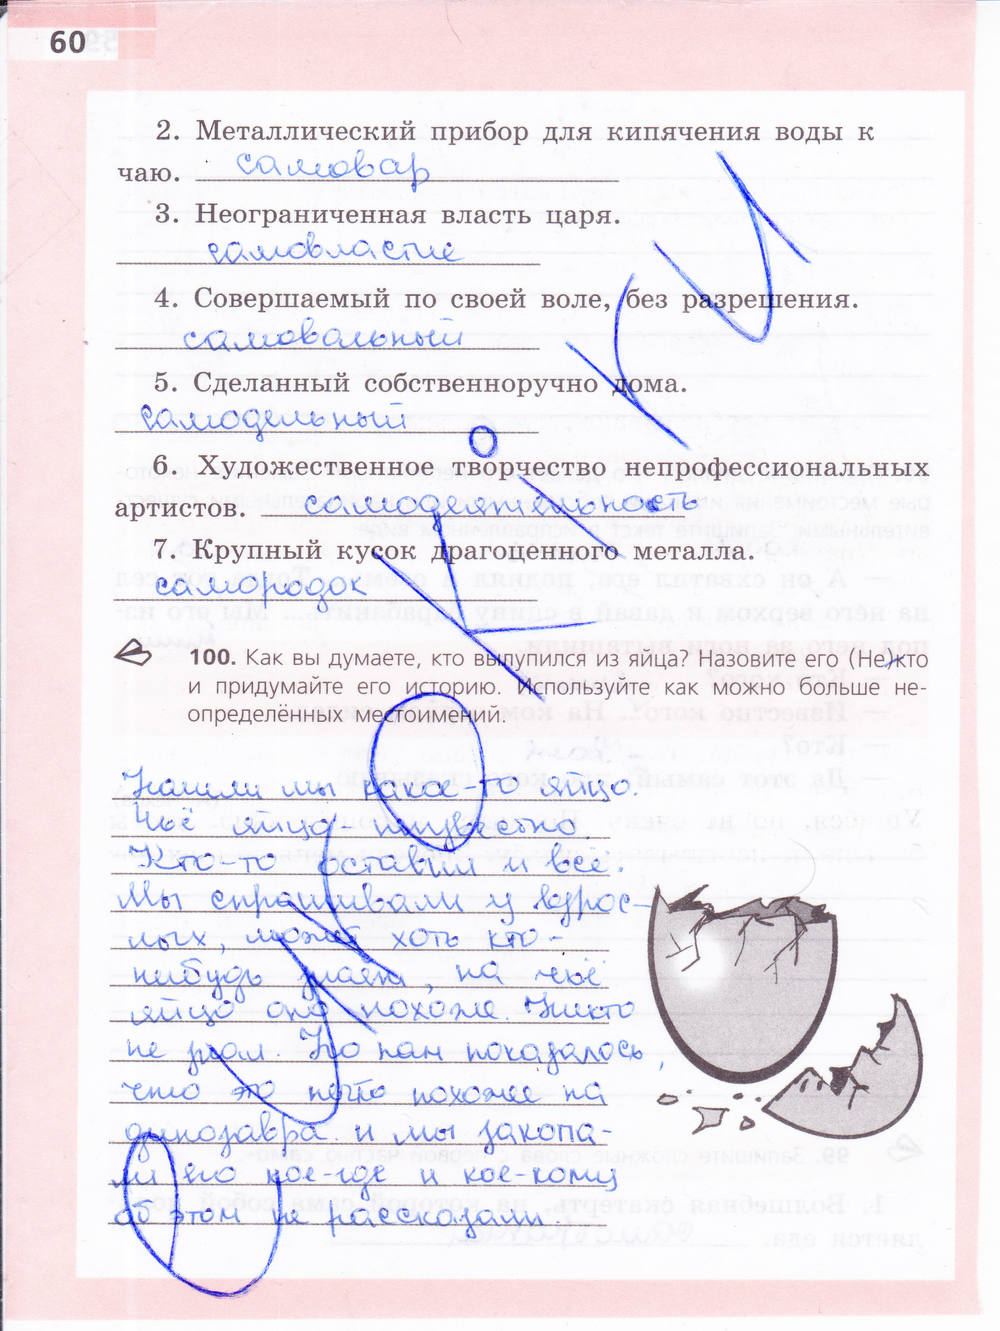 60
2. Металлический прибор для кипячения воды к
чаю. самовар
3. Неограниченная власть царя.
самовластие
4. Совершаемый по своей воле, без разрешения.
самовольный
5. Сделанный собственноручно дома.
самодельный
6. Художественное творчество непрофессиональных
артистов. самодеятельность
7. Крупный кусок драгоценного металла.
самородок
100. Как вы думаете, кто вылупился из яйца? Назовите его (Не)кто
и придумайте его историю. Используйте как можно больше не-
определённых местоимений.
Нашли мы какое-то яйцо.
Чьё яйцо - неизвестно
Кто-то оставил и всё.
Мы спрашивали у взрос-
лых, может хоть кто-
нибудь знает, на чьё
яйцо оно похоже. Никто
не знал. Но нам показалось,
что это нечто похожее на
динозавра. и мы закопа-
ли его кое-где и кое-кому
об этом не рассказали.